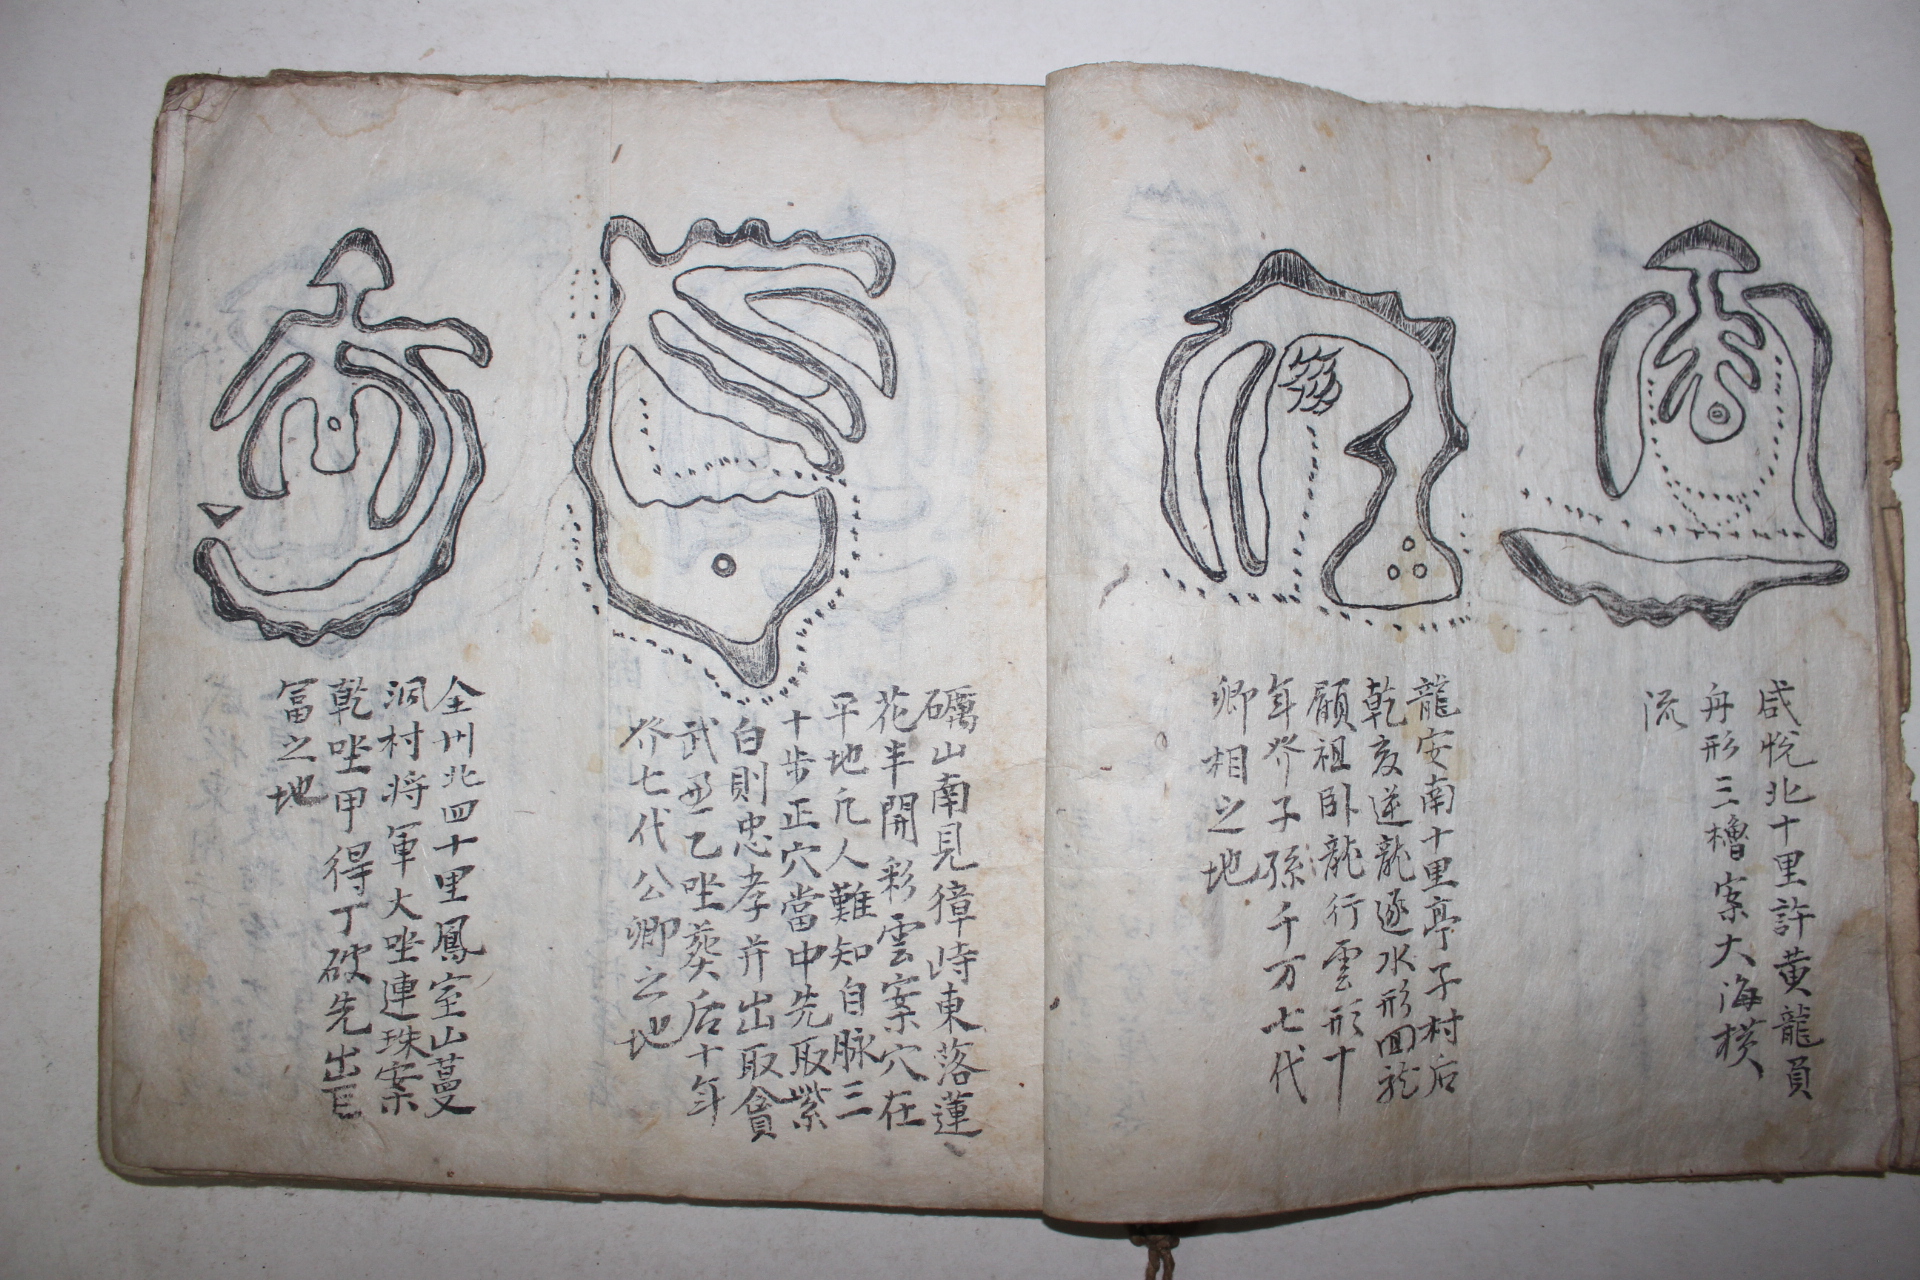 咸悅北十里許黄龍員
舟形三櫓案大海横
流
龍安南十里亭子村后
乾亥逆龍逐水形回龍
顧祖卧龍行雲形十
年發子孫千万七代
卿相之地
礪山南見獐峙東落蓮
花半開彩雲案穴在
平地凡人難知自脉三
十步正穴當中先取紫
白則忠孝并出取貪
武丑乙坐葵后十年
發七代公卿之地
全州北四十里鳳室山蔓
洞村将軍大坐連珠案
乾坐甲得丁破先出巨
冨之地